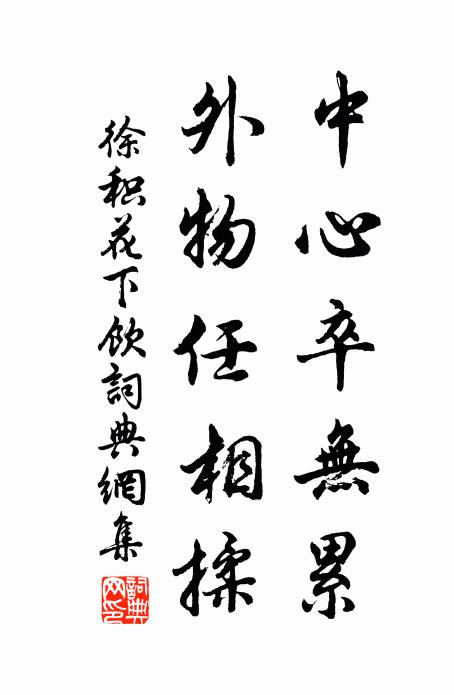 中心卒無累
外物任相揉
徐积花下飲詞典網集
詞典网印